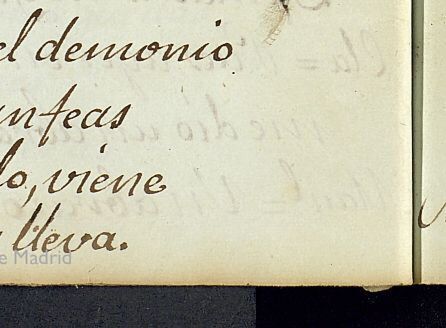 el demonio
n feas
lo, viene
lleva.
e Madrid